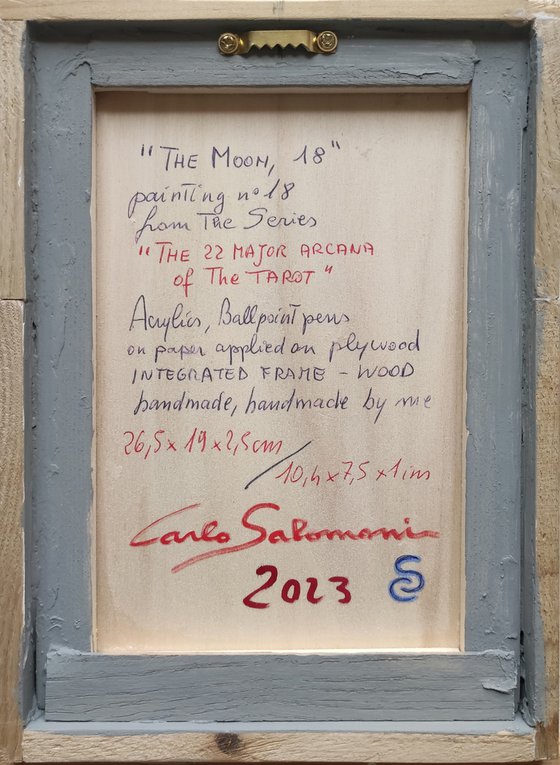 "THE MOON, 18"
painting n° 18
from The Series
"THE 22 MAJOR ARCANA
of The TAROT"
Acrylics, Ballpoint pens
on paper applied on plywood
INTEGRATED FRAME - WOOD
handmade, handmade by me
26,5 x 19 x 2,5 cm
/ 10,4 x 7,5 x 1 in
Carlo Salomoni
2023